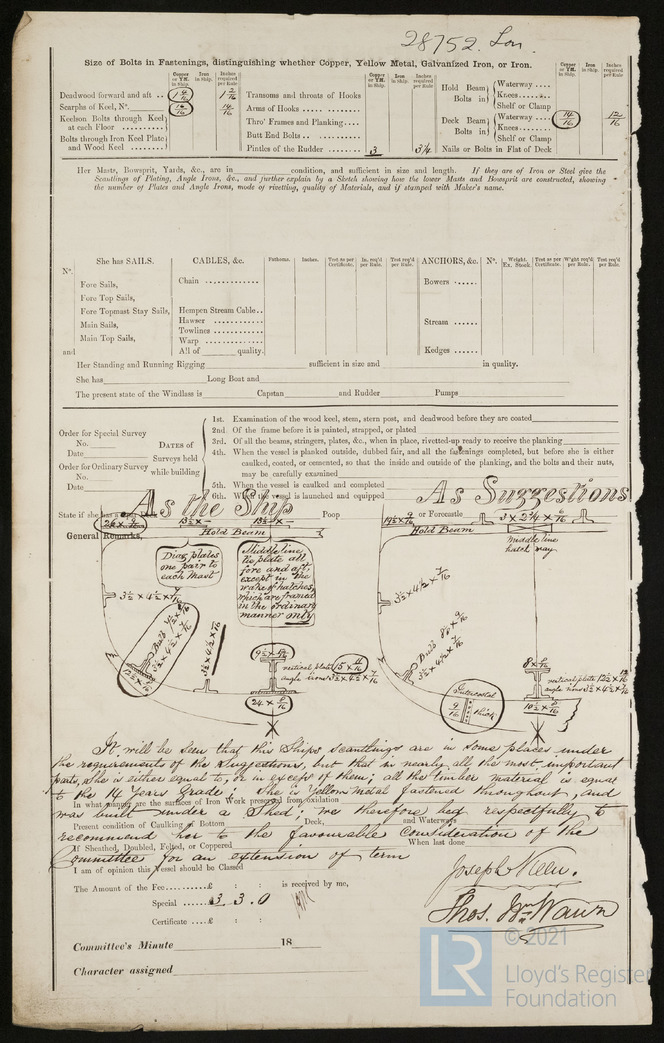 28752. Lon.
Size of Bolts in Fastenings, distinguishing whether Copper, Yellow Metal, Galvanized Iron, or Iron.
Copper or Y.M. in Ship. Iron in Ship. Inches required per Rule
Copper or Y.M. in Ship. Iron in Ship. Inches required per Rule
Copper or Y.M. in Ship. Iron in Ship. Inches required per Rule
Deadwood forward and aft ..
Scarphs of Keel, No. 14/16 14/16
Keelson Bolts through Keel at each Floor
Bolts through Iron Keel Plate and Wood Keel
Transoms and throats of Hooks
Arms of Hooks
Thro' Frames and Planking....
Butt End Bolts
Pintles of the Rudder 3 3 1/4
Hold Beam Bolts in Waterway
Knees
Shelf or Clamp
Deck Beam Bolts in Waterway 14/16 12/16
Knees
Shelf or Clamp
Nails or Bolts in Flat of Deck
Her Masts, Bowsprit, Yards, &c., are in condition, and sufficient in size and length. If they are of Iron or Steel give the
Scantlings of Plating, Angle Irons, &c., and further explain by a Sketch showing how the lower Masts and Bowsprit are constructed, showing
the number of Plates and Angle Irons, mode of rivetting, quality of Materials, and if stamped with Maker's name.
She has SAILS. CABLES, &c. Fathoms. Inches. Test as per Certificate. In. req'd per Rule. Test req'd per Rule. ANCHORS, &c. No. Weight. Ex. Stock. Test as per Certificate. W'ght req'd per Rule. Test req'd per Rule.
No.
Fore Sails,
Fore Top Sails,
Fore Topmast Stay Sails,
Main Sails,
Main Top Sails,
and
Chain
Hempen Stream Cable
Hawser
Towlines
Warp
All of quality.
Bowers
Stream
Kedges
Her Standing and Running Rigging sufficient in size and in quality.
She has Long Boat and
The present state of the Windlass is Capstan and Rudder Pumps
Order for Special Survey
No.
Date
Order for Ordinary Survey
No.
Date
DATES of Surveys held while building
1st. Examination of the wood keel, stem, stern post, and deadwood before they are coated
2nd. Of the frame before it is painted, strapped, or plated
3rd. Of all the beams, stringers, plates, &c., when in place, rivetted-up ready to receive the planking
4th. When the vessel is planked outside, dubbed fair, and all the fastenings completed, but before she is either
caulked, coated, or cemented, so that the inside and outside of the planking, and the bolts and their nuts,
may be carefully examined
5th. When the vessel is caulked and completed
6th. When the vessel is launched and equipped
As the Ship
As Suggestions
State if she has a Poop or Forecastle
General Remarks,
Hold Beam
Diag plates
one pair to
each Mast
Middle line
tie plate all
fore and aft,
except in the
wake of hatches,
which are framed
in the ordinary
manner only
3 1/2 x 4 1/2 x 7/16
3 1/2 x 4 1/2 x 7/16
vertical plate 15 x 11/16
angle irons 3 1/2 x 4 1/2 x 7/16
24 x 8/16
Hold Beam
3 x 2 3/4 x 6/16
middle line
hatch way
3 1/2 x 4 1/2 x 7/16
Intercostal
9/16 thick
8 x 9/16
angle irons 3 1/2 x 4 1/2 x 7/16
10 1/2 x 8/16
It will be seen that this Ships scantlings are in some places under
the requirements of the Suggestions, but that in nearly all the most important
parts, she is either equal to, or in excess of them; all the timber material is equal
to the 14 Years Grade; She is Yellow metal fastened throughout, and
In what manner are the surfaces of Iron Work preserved from oxidation
was built under a Shed, we therefore beg respectfully to
Present condition of Caulking in Bottom Deck, and Waterways
recommend her to the favourable consideration of the
If Sheathed, Doubled, Felted, or Coppered When last done
Committee for an extension of term
I am of opinion this Vessel should be Classed
Joseph Keen.
The Amount of the Fee ........£ : : is received by me,
Special .....£ 3. 3. 0
Thos. Wm Wawn
Certificate ...£ : :
Committee's Minute 18
Character assigned
LR © 2021
Lloyd's Register
Foundation